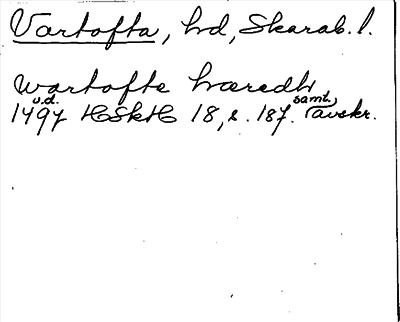 Vartofta, hd, Skarab. l.
wartofte hæredh
1497 u.d. HSkH 18, s. 187. samt. avskr.